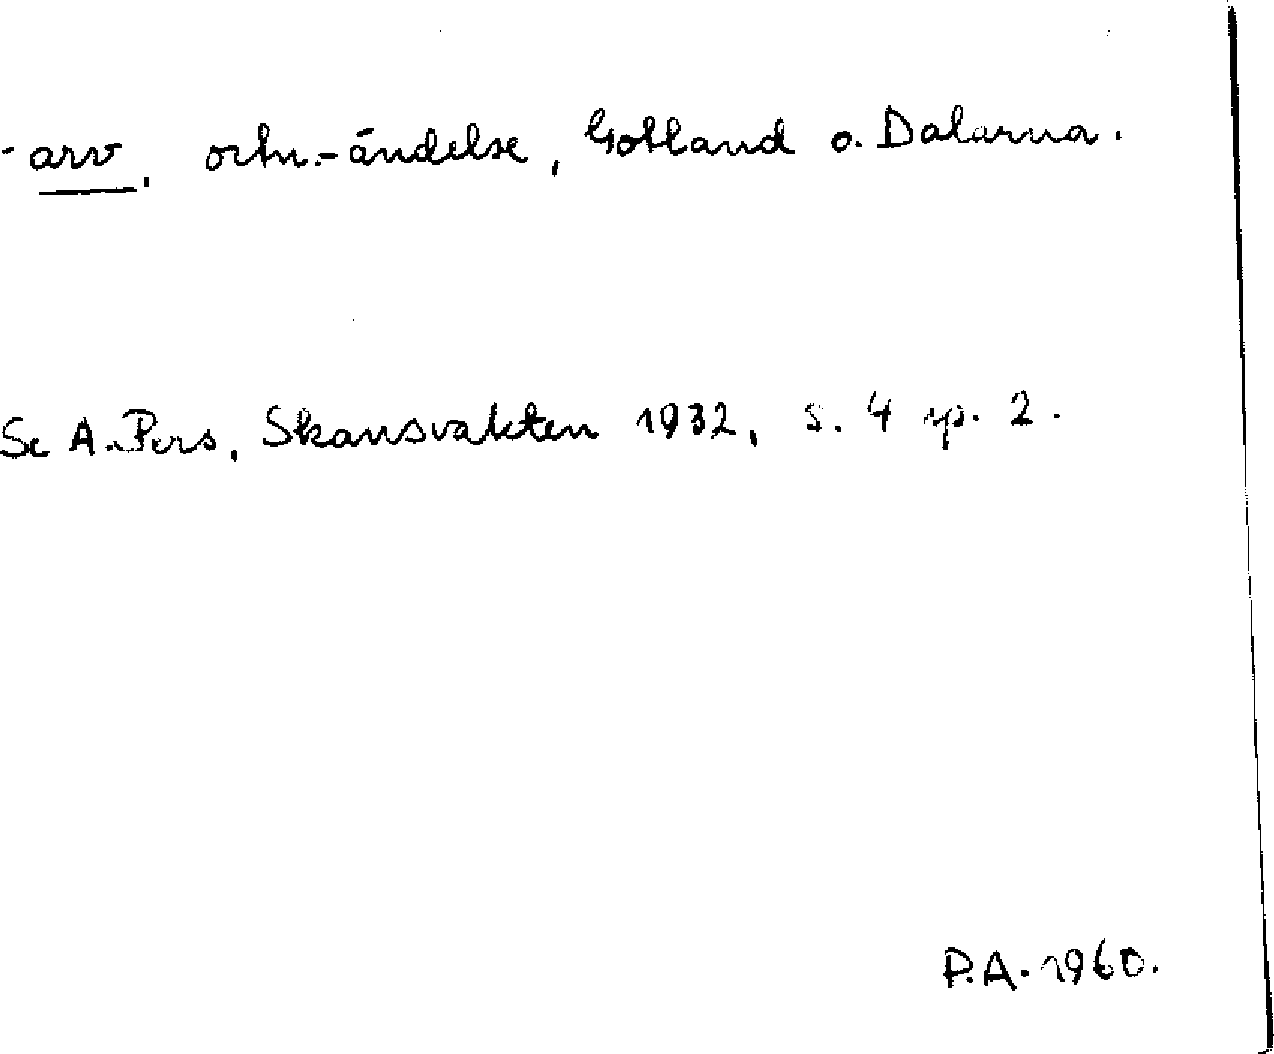 -arv, ortn.-ändelse, Gotland o. Dalarna.
Se A. Pers, Skansvakten 1932, s. 4 sp. 2.
P.A. 1960.